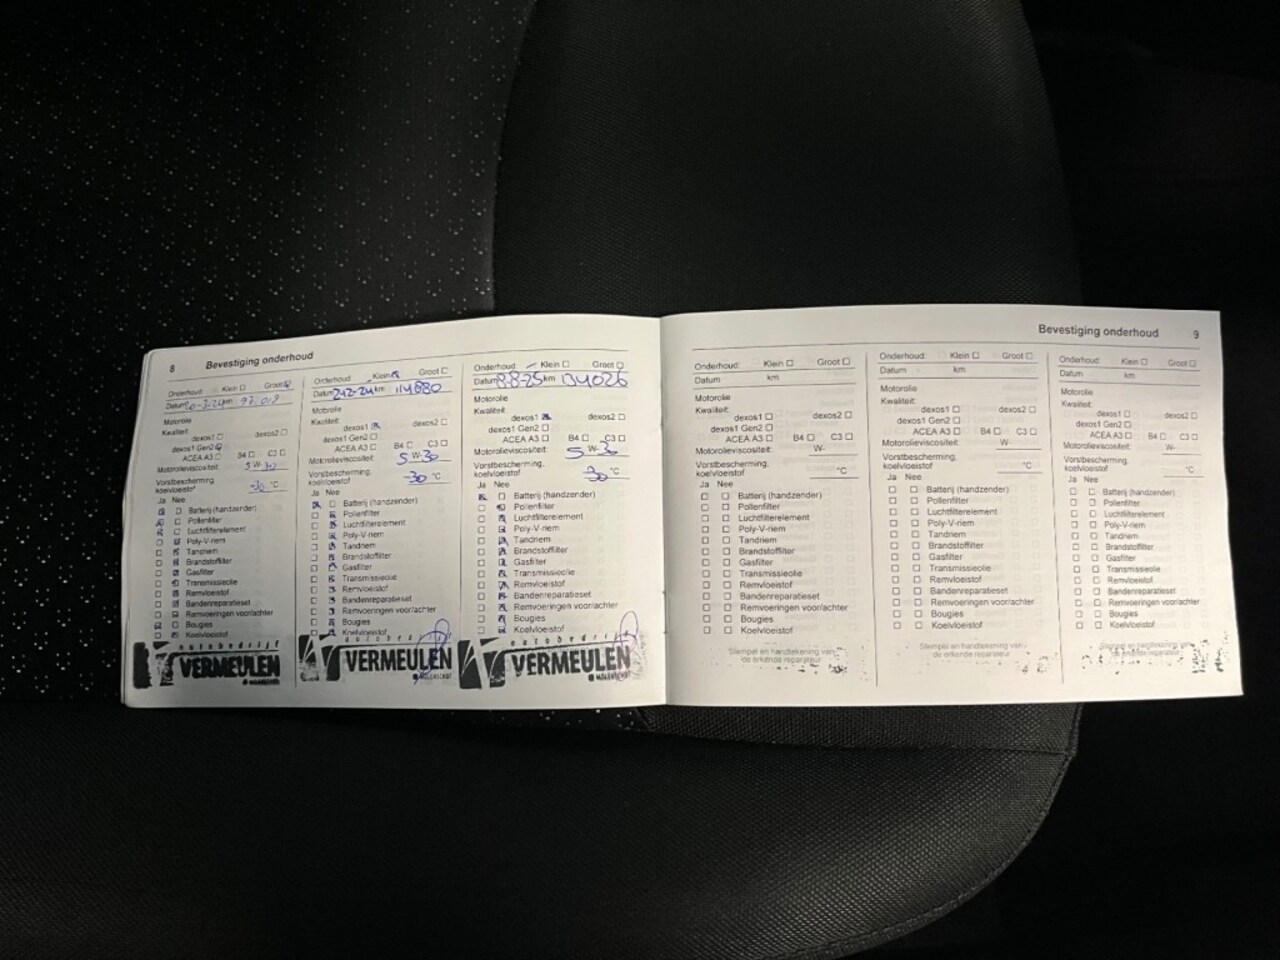 8 Bevestiging onderhoud
Onderhoud: Klein ☐ Groot ☑
Datum 20-3-24 km 97.019
Motorolie
Kwaliteit:
dexos1 ☐ dexos2 ☐
dexos1 Gen2 ☑
ACEA A3 ☐ B4 ☐ C3 ☐
Motorolieviscositeit: 5 W- 30
Vorstbescherming,
koelvloeistof -30 °C
Ja Nee
Batterij (handzender)
Pollenfilter
Luchtfilterelement
Poly-V-riem
Tandriem
Brandstoffilter
Gasfilter
Transmissieolie
Remvloeistof
Bandenreparatieset
Remvoeringen voor/achter
Bougies
Koelvloeistof
autobedrijf
VERMEULEN
MOLENSCHOT
Onderhoud: Klein ☑ Groot ☐
Datum km 114880
Motorolie
Kwaliteit:
dexos1 ☑ dexos2 ☐
dexos1 Gen2 ☐
ACEA A3 ☐ B4 ☐ C3 ☐
Motorolieviscositeit: 5 W-30
Vorstbescherming,
koelvloeistof -30 °C
Ja Nee
Batterij (handzender)
Pollenfilter
Luchtfilterelement
Poly-V-riem
Tandriem
Brandstoffilter
Gasfilter
Transmissieolie
Remvloeistof
Bandenreparatieset
Remvoeringen voor/achter
Bougies
Koelvloeistof
VERMEULEN
MOLENSCHOT
Onderhoud: Klein ☐ Groot ☐
Datum 8-8-25 km 134026
Motorolie
Kwaliteit:
dexos1 ☑ dexos2 ☐
dexos1 Gen2 ☐
ACEA A3 ☐ B4 ☐ C3 ☐
Motorolieviscositeit: 5 W-30
Vorstbescherming,
koelvloeistof -30 °C
Ja Nee
Batterij (handzender)
Pollenfilter
Luchtfilterelement
Poly-V-riem
Tandriem
Brandstoffilter
Gasfilter
Transmissieolie
Remvloeistof
Bandenreparatieset
Remvoeringen voor/achter
Bougies
Koelvloeistof
autobedrijf
VERMEULEN
MOLENSCHOT
Bevestiging onderhoud 9
Onderhoud: Klein ☐ Groot ☐
Datum km
Motorolie
Kwaliteit:
dexos1 ☐ dexos2 ☐
dexos1 Gen2 ☐
ACEA A3 ☐ B4 ☐ C3 ☐
Motorolieviscositeit: W-
Vorstbescherming,
koelvloeistof °C
Ja Nee
Batterij (handzender)
Pollenfilter
Luchtfilterelement
Poly-V-riem
Tandriem
Brandstoffilter
Gasfilter
Transmissieolie
Remvloeistof
Bandenreparatieset
Remvoeringen voor/achter
Bougies
Koelvloeistof
Stempel en handtekening van
de erkende reparateur
Onderhoud: Klein ☐ Groot ☐
Datum km
Motorolie
Kwaliteit:
dexos1 ☐ dexos2 ☐
dexos1 Gen2 ☐
ACEA A3 ☐ B4 ☐ C3 ☐
Motorolieviscositeit: W-
Vorstbescherming,
koelvloeistof
Ja Nee
Batterij (handzender)
Pollenfilter
Luchtfilterelement
Poly-V-riem
Tandriem
Brandstoffilter
Gasfilter
Transmissieolie
Remvloeistof
Bandenreparatieset
Remvoeringen voor/achter
Bougies
Koelvloeistof
Stempel en handtekening van
de erkende reparateur
Onderhoud: Klein ☐ Groot ☐
Datum km
Motorolie
Kwaliteit:
dexos1 ☐ dexos2 ☐
dexos1 Gen2 ☐
ACEA A3 ☐ B4 ☐ C3 ☐
Motorolieviscositeit: W-
Vorstbescherming,
koelvloeistof °C
Ja Nee
Batterij (handzender)
Pollenfilter
Luchtfilterelement
Poly-V-riem
Tandriem
Brandstoffilter
Gasfilter
Transmissieolie
Remvloeistof
Bandenreparatieset
Remvoeringen voor/achter
Bougies
Koelvloeistof
Stempel en handtekening van
de erkende reparateur